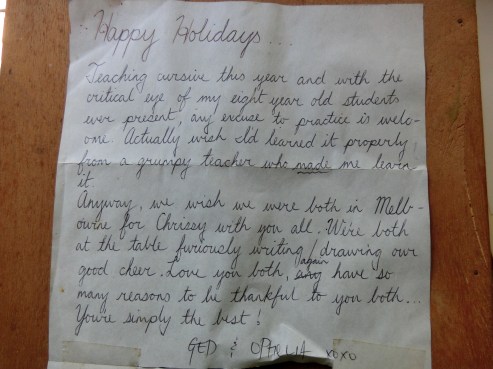 Happy Holidays...
Teaching cursive this year and with the
critical eye of my eight year old students
ever present, any excuse to practice is welc-
ome. Actually wish I'd learned it properly
from a grumpy teacher who made me learn
it.
Anyway, we wish we were both in Melb-
ourne for Chrissy with you all. We're both
at the table furiously writing/drawing our
again
good cheer. Love you both, have so
many reasons to be thankful to you both...
You're simply the best!
GED & xoxo